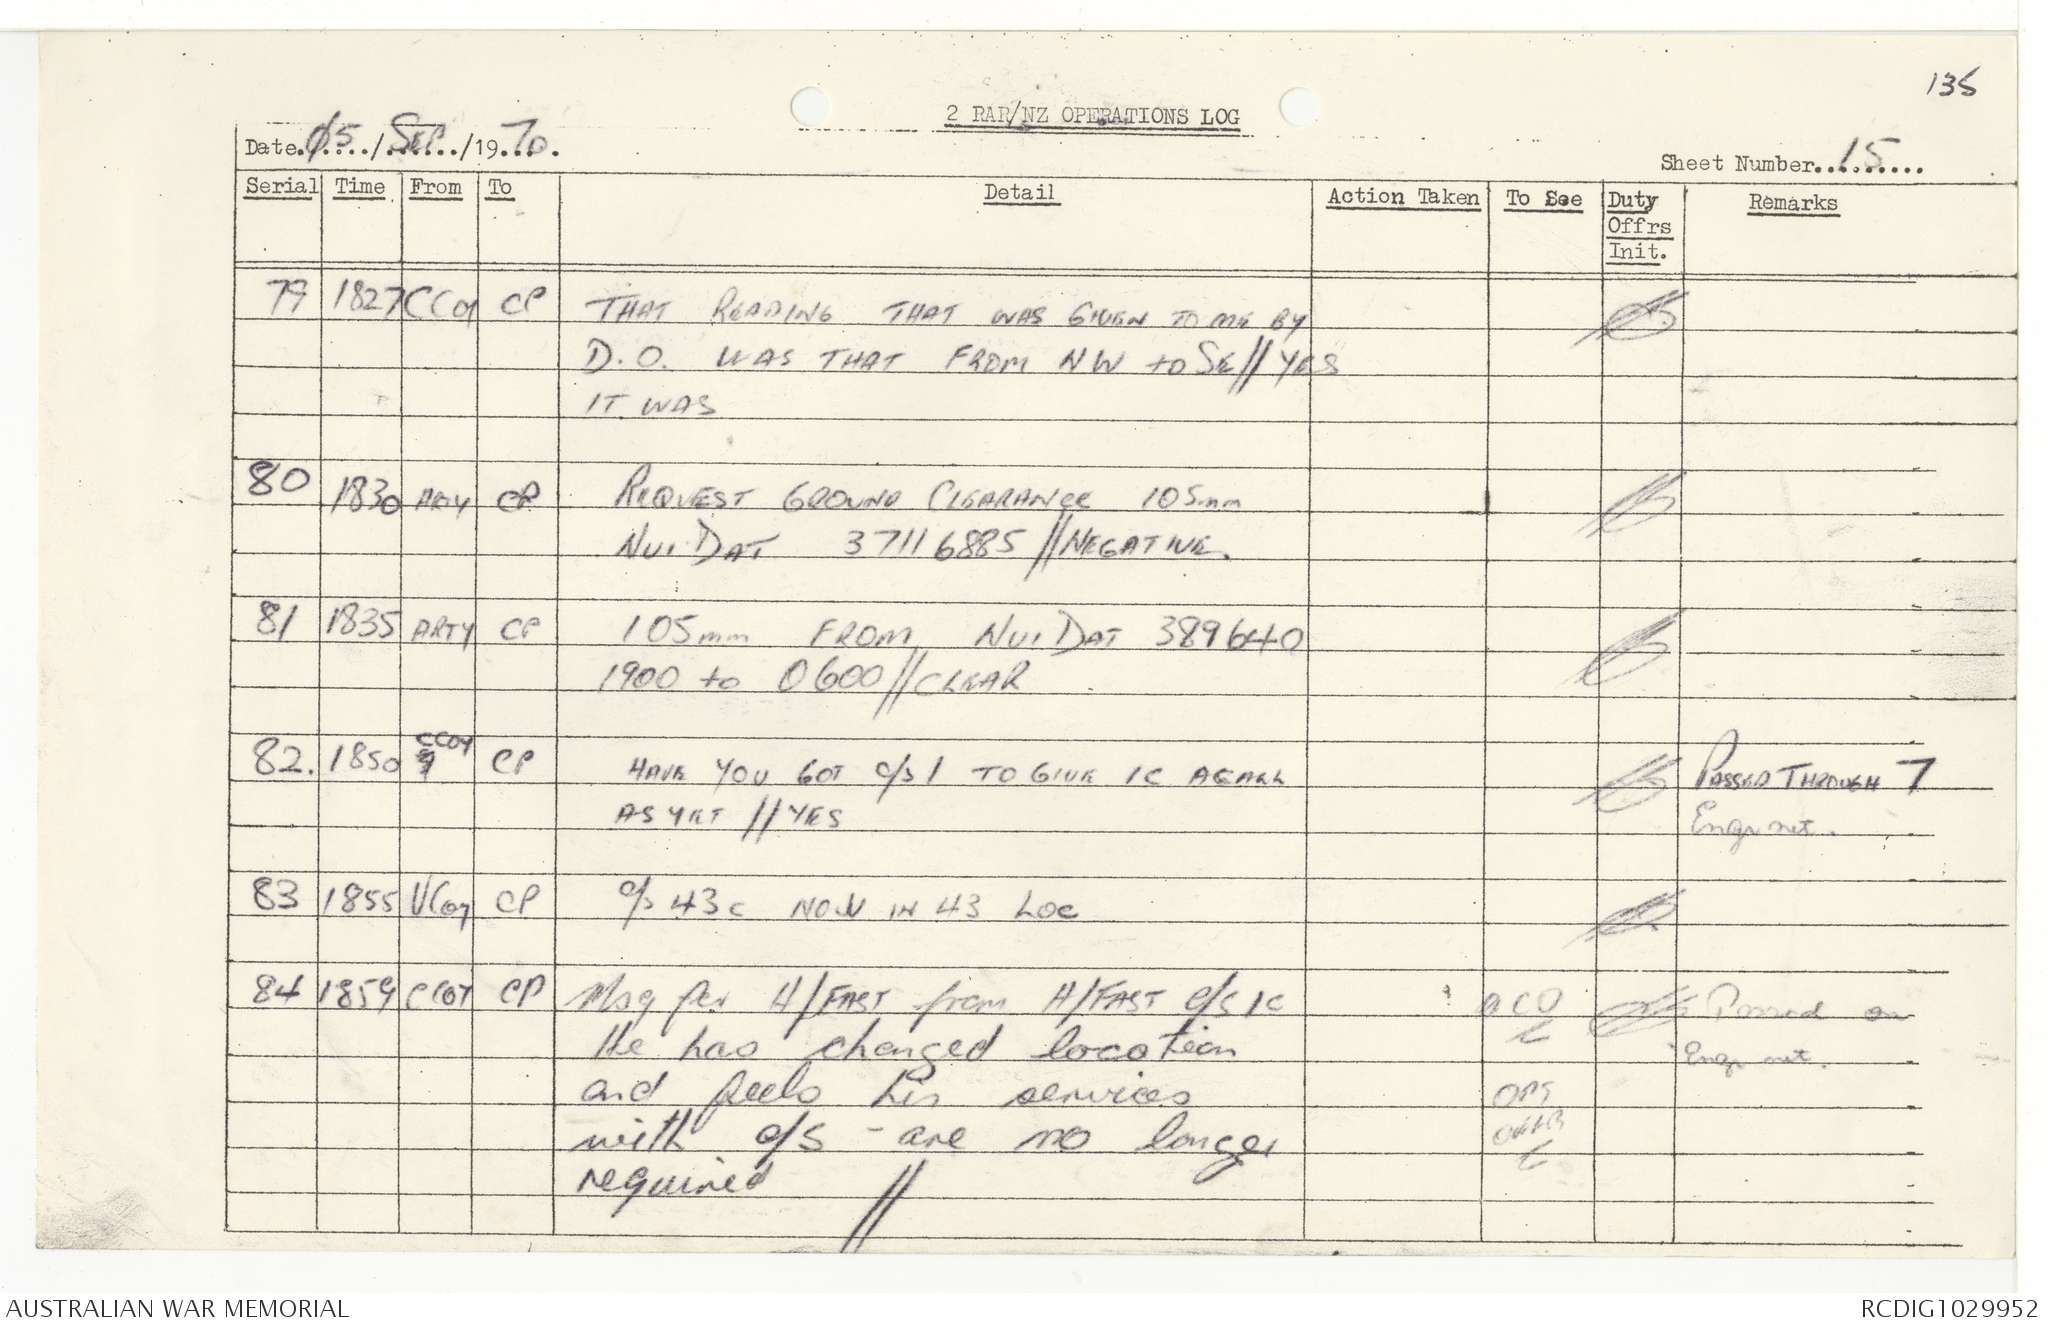 135
2 RAR/NZ OPERATIONS LOG
Date. 05 / SEP /19 70.
Sheet Number. 15
Serial Time From To Detail Action Taken To See Duty Offrs Init. Remarks
79 1827 CCoy CP THAT READING THAT WAS GIVEN TO ME BY
D.O. WAS THAT FROM NW to SE // YES
IT WAS
80 1830 ARTY CP REQUEST GROUND CLEARANCE 105mm
NUI DAT 37116885 // NEGATIVE.
81 1835 ARTY CP 105mm FROM NUI DAT 389640
1900 to 0600 // CLEAR
82. 1850 CCOY CP HAVE YOU GOT c/s 1 TO GIVE 1C A CALL PASSED THROUGH 7
AS YET // YES Engr net.
83 1855 VCoy CP c/s 43c NOW IN 43 LOC
84 1859 CCOY CP Msg per H/FAST from H/FAST c/s 1c Passed on
He has changed location Engr net.
and feels his services OPS
with c/s - are no longer
required //
AUSTRALIAN WAR MEMORIAL RCDIG1029952